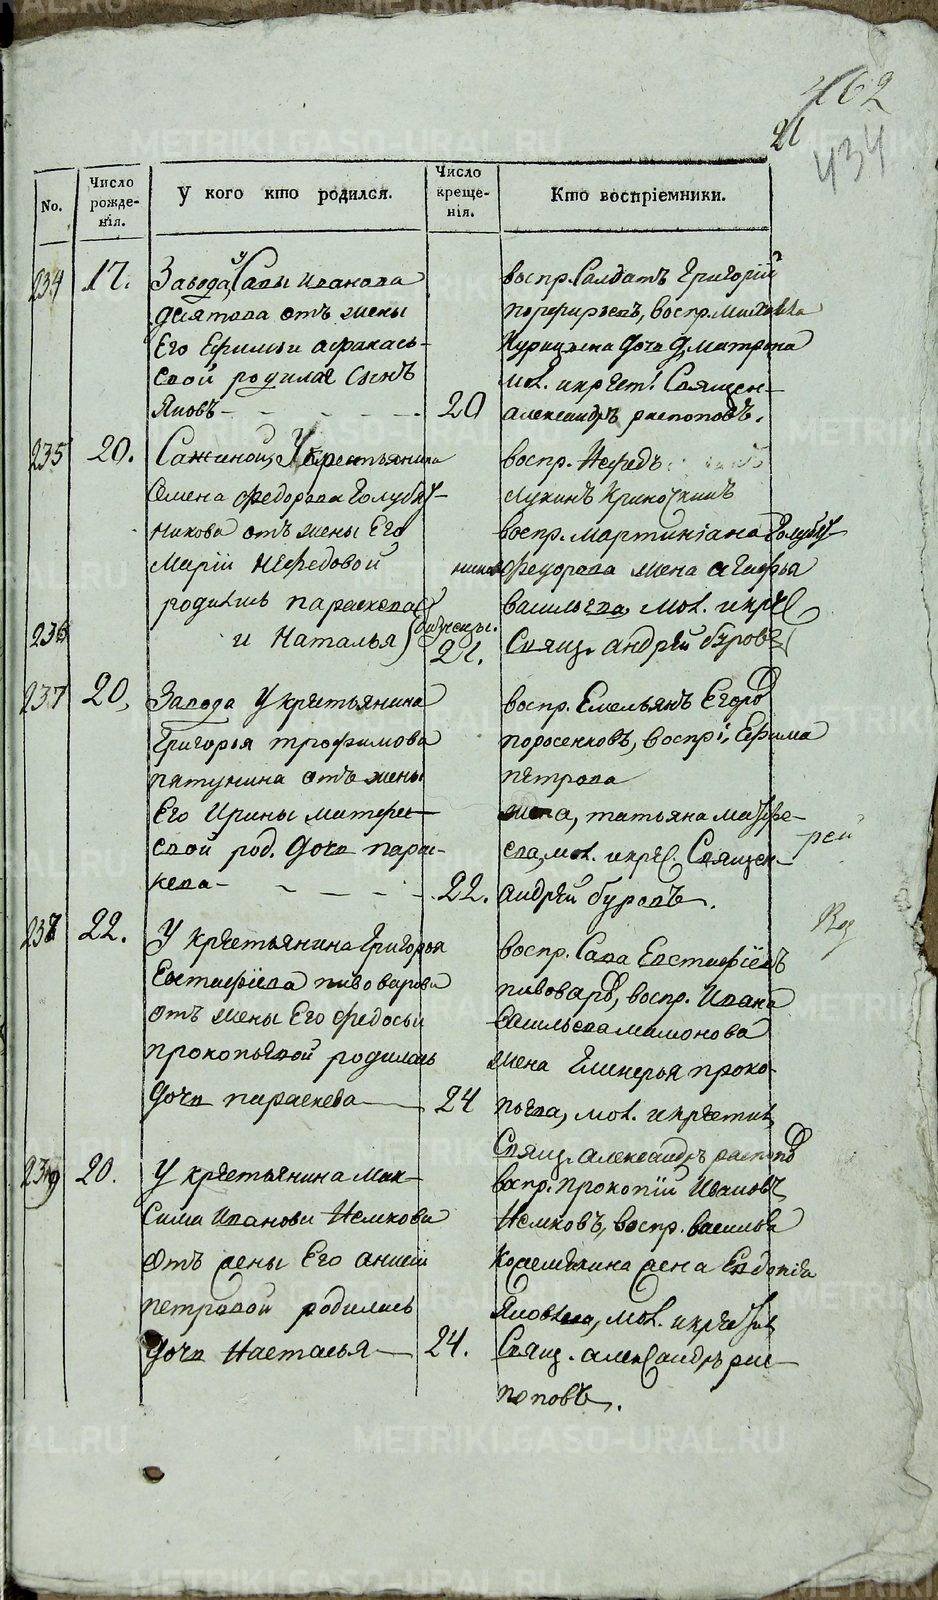 462
21
434
No.
Число рожденія.
У кого кто родился.
Число крещенія.
Кто воспріемники.
234
17.
Завода, у Савы Иванова
Десятова отъ жены
Его Ефимьи Афанась-
евой родился сынъ
Яковъ
20
воспр. Салдатъ Григорій
порфирьевъ, воспр.
дочь Матрона
мол. и крест. Священ-
александръ распоповъ.
235
20.
У крестьянина
Семена Федорова Голубят-
никова отъ жены Его
Маріи Нефедовой
родились параскева
236
и Наталья
близнецы.
21.
воспр. Нефедъ
Лукинъ
воспр. мартиніана Голубят-
никова федорова жена агафья
васильева, мол. и кре
Свящ. андрей буровъ
237
20,
Завода У крестьянина
Григорья трофимова
пятунина отъ жены
Его Ирины матфе-
евой род. дочь парас-
кева
22.
воспр. Емельянъ Егоров
поросенковъ, воспрі. Ефима
петрова
жена, татьяна матфе-
ева, мол. и кре. Священ-
андрей буровъ.
238
22.
У крестьянина Григорья
Евстафіева пивоварова
отъ жены Его федосьи
прокопьевой родилась
дочь параскева
24
воспр. Сава Евстафіевъ
пивоваров, воспр. Ивана
васильева мамонова
жена Гликерья проко-
пьева, мол. и крестил
Свящ. александръ распопов
239
20.
У крестьянина Мак-
сима Иванова Немкова
отъ жены Его анисіи
петровой родилась
дочь Настасья
24.
воспр. прокопій Ивановъ
Немковъ, воспр. василья
жена Евдокія
Яковлева, мол. и крестил
Свящ. александръ рас-
поповъ.
METRIKI.GASO-URAL.RU